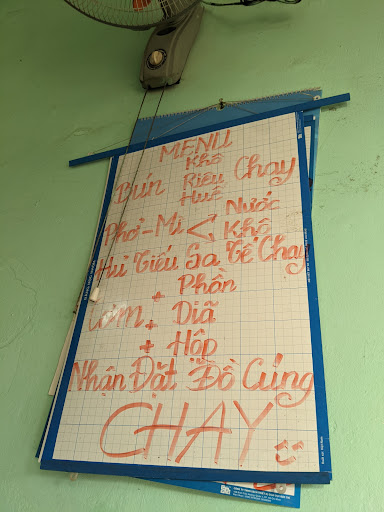 MENU
Khô
Bún Riêu Chay
Huế
Nước
Phở - Mì < Khô
Hủ Tiếu Sa Tế Chay
+ Phần
Cơm + Diã
+ Hộp
Nhận Đặt Đồ Cúng
CHAY